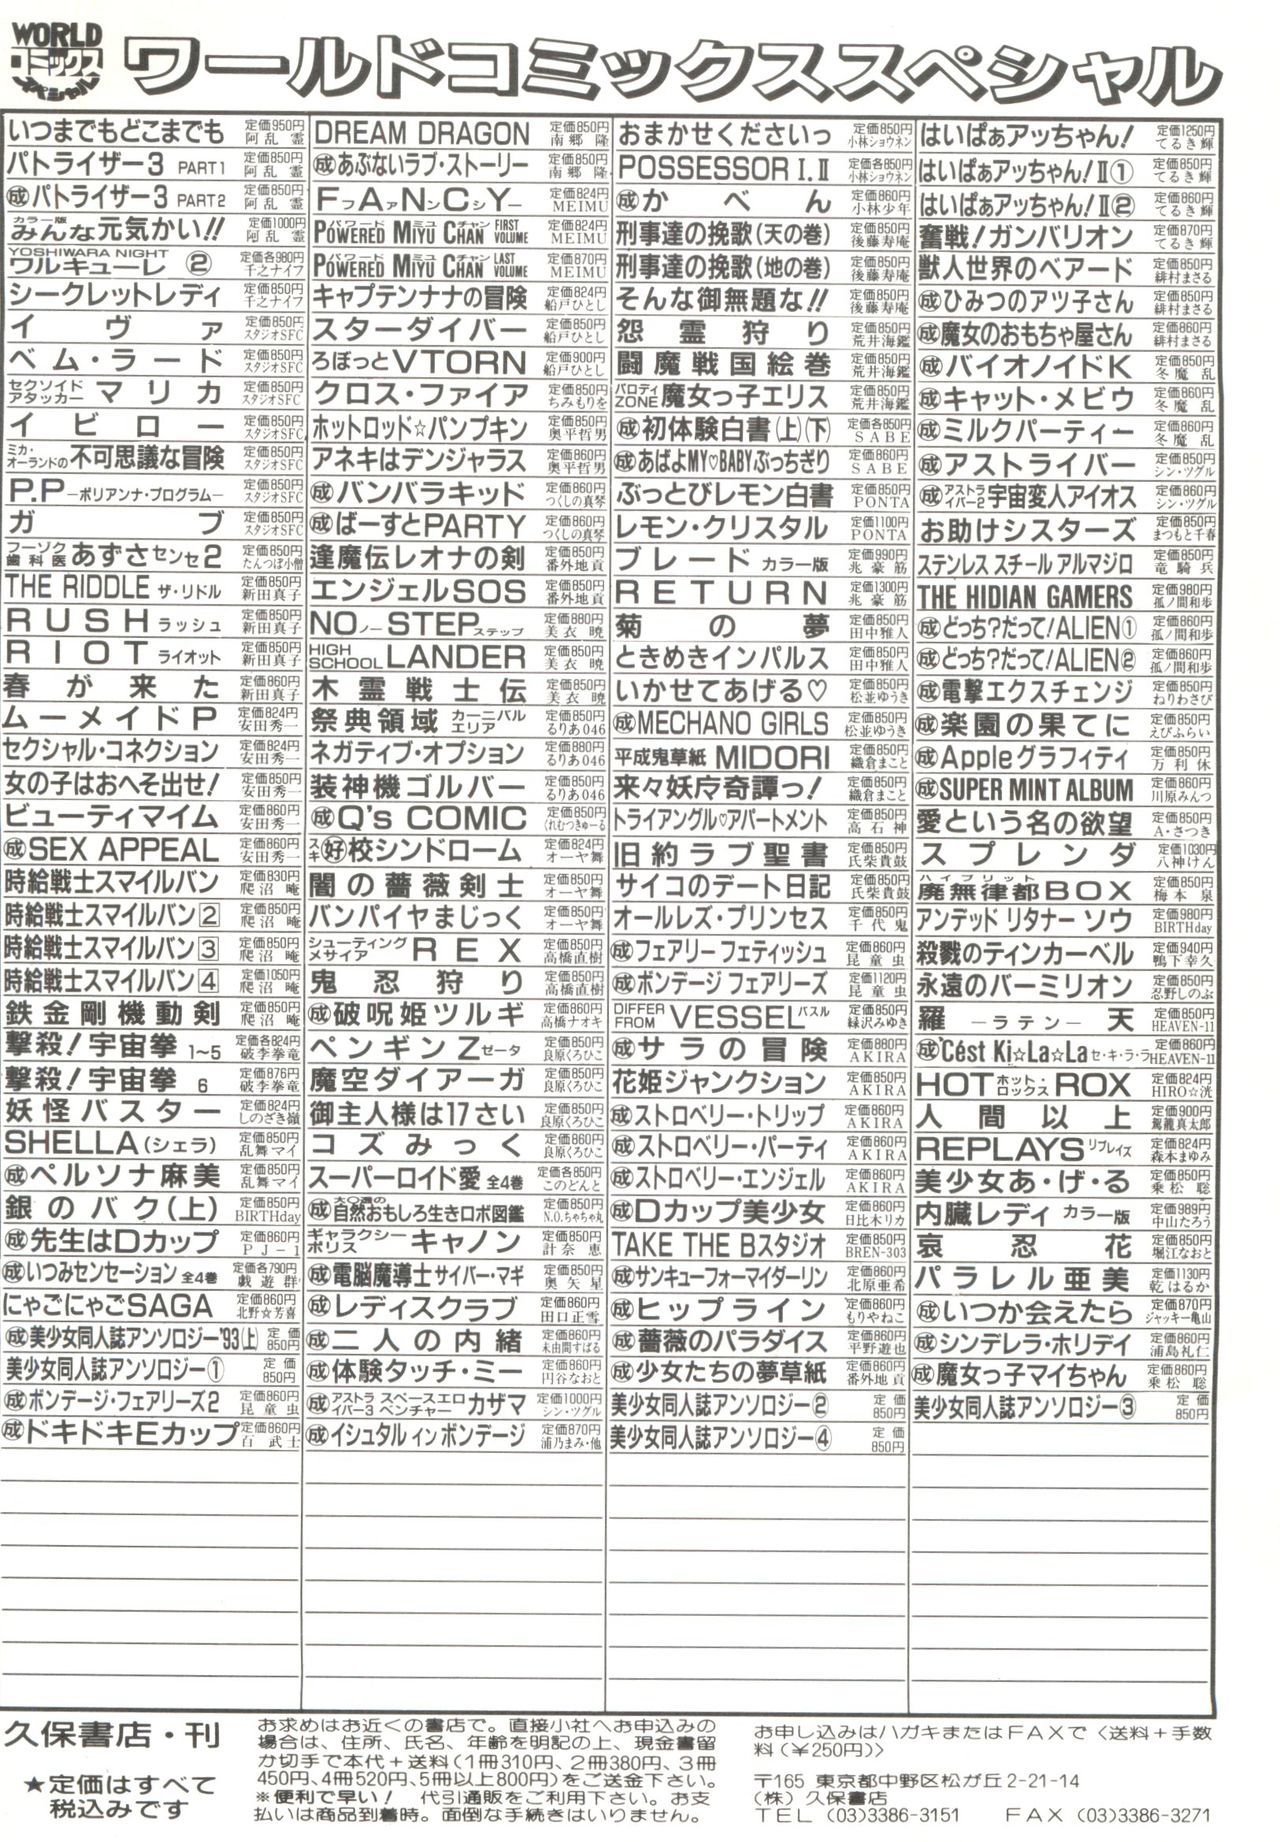 WORLD
コミックス
スペシャル
ワールドコミックススペシャル
いつまでもどこまでも 定価950円 阿乱霊
パトライザー3 PART1 定価850円 阿乱霊
成パトライザー3 PART2 定価850円 阿乱霊
カラー版 みんな元気かい!! 定価1000円 阿乱霊
YOSHIWARA NIGHT ワルキューレ ② 定価各980円 千之ナイフ
シークレットレディ 定価850円 千之ナイフ
イヴァ 定価850円 スタジオSFC
ベム・ラード 定価850円 スタジオSFC
セクソイドアタッカー マリカ 定価850円 スタジオSFC
イビロー 定価850円 スタジオSFC
ミカ・オーランドの不可思議な冒険 定価850円 スタジオSFC
P.P－ポリアンナ・プログラム－ 定価850円 スタジオSFC
ガブ 定価850円 スタジオSFC
フーゾク歯科医 あずさセンセ2 定価850円 たんつぼ小僧
THE RIDDLE ザ・リドル 定価850円 新田真子
RUSH ラッシュ 定価850円 新田真子
RIOT ライオット 定価850円 新田真子
春が来た 定価860円 新田真子
ムーメイドP 定価824円 安田秀一
セクシャル・コネクション 定価824円 安田秀一
女の子はおへそ出せ! 定価850円 安田秀一
ビューティマイム 定価860円 安田秀一
成SEX APPEAL 定価860円 安田秀一
時給戦士スマイルバン 定価830円 爬沼庵
時給戦士スマイルバン2 定価850円 爬沼庵
時給戦士スマイルバン3 定価850円 爬沼庵
時給戦士スマイルバン4 定価1050円 爬沼庵
鉄金剛機動剣 定価850円 爬沼庵
撃殺!宇宙拳 1~5 定価各824円 破李拳竜
撃殺!宇宙拳 6 定価876円 破李拳竜
妖怪バスター 定価824円 しのざき嶺
SHELLA(シェラ) 定価850円 乱舞マイ
成ペルソナ麻美 定価850円 乱舞マイ
銀のバク(上) 定価850円 BIRTHday
成先生はDカップ 定価860円 PJ-1
成いつみセンセーション 全4巻 定価各790円 戯遊群
にゃごにゃごSAGA 定価860円 北野☆芳喜
成美少女同人誌アンソロジー'93(上) 定価850円
美少女同人誌アンソロジー① 定価850円
成ボンデージ・フェアリーズ2 定価860円 昆童虫
成ドキドキEカップ 定価860円 百武士
DREAM DRAGON 定価850円 南郷隆
成あぶないラブ・ストーリー 定価850円 南郷隆
FァAァNンCシY－ 定価824円 MEIMU
POWERED MIYU CHAN パワード ミユ チャン FIRST VOLUME 定価824円 MEIMU
POWERED MIYU CHAN パワード ミユ チャン LAST VOLUME 定価870円 MEIMU
キャプテンナナの冒険 定価824円 船戸ひとし
スターダイバー 定価850円 船戸ひとし
ろぼっとVTORN 定価900円 船戸ひとし
クロス・ファイア 定価850円 ちみもりを
ホットロッド☆パンプキン 定価850円 奥平哲男
アネキはデンジャラス 定価860円 奥平哲男
成バンバラキッド 定価860円 つくしの真琴
成ばーすとPARTY 定価860円 つくしの真琴
逢魔伝レオナの剣 定価850円 番外地貢
エンジェルSOS 定価850円 番外地貢
NOノーSTEPステップ 定価880円 美衣暁
HIGH SCHOOL LANDER 定価850円 美衣暁
木霊戦士伝 定価850円 美衣暁
祭典領域 カーニバルエリア 定価880円 るりあ046
ネガティブ・オプション 定価880円 るりあ046
装神機ゴルバー 定価850円 るりあ046
成Q's COMIC 定価850円 くれむつきゅーる
スキ好校シンドローム 定価824円 オーヤ舞
闇の薔薇剣士 定価850円 オーヤ舞
バンパイヤまじっく 定価850円 オーヤ舞
シューティングメサイア REX 定価850円 高橋直樹
鬼忍狩り 定価850円 高橋直樹
成破呪姫ツルギ 定価860円 高橋ナオキ
ペンギンZゼータ 定価850円 良原くろひこ
魔空ダイアーガ 定価850円 良原くろひこ
御主人様は17さい 定価850円 良原くろひこ
コズみっく 定価860円 良原くろひこ
スーパーロイド愛 全4巻 定価各850円 このどんと
成自然おもしろ生きロボ図鑑 定価850円 N.O.ちゃちゃ丸
ギャラクシーポリス キャノン 定価850円 計奈恵
成電脳魔導士サイバー・マギ 定価850円 奥矢星
成レディスクラブ 定価860円 田口正雪
成二人の内緒 定価860円 未由間すばる
成体験タッチ・ミー 定価860円 円谷なおと
成アストライバー3 スペースエロベンチャー カザマ 定価1000円 シン・ツグル
成イシュタル イン ボンデージ 定価870円 浦乃まみ・他
おまかせくださいっ 定価850円 小林ショウネン
POSSESSOR I.II 定価各850円 小林ショウネン
成かべん 定価860円 小林少年
刑事達の挽歌(天の巻) 定価850円 後藤寿庵
刑事達の挽歌(地の巻) 定価850円 後藤寿庵
そんな御無題な!! 定価850円 後藤寿庵
怨霊狩り 定価850円 荒井海鑑
闘魔戦国絵巻 定価850円 荒井海鑑
パロディZONE魔女っ子エリス 定価850円 荒井海鑑
成初体験白書(上)(下) 定価各850円 SABE
成あばよMY♡BABYぶっちぎり 定価860円 SABE
ぶっとびレモン白書 定価850円 PONTA
レモン・クリスタル 定価1100円 PONTA
ブレード カラー版 定価990円 兆豪筋
RETURN 定価1300円 兆豪筋
菊の夢 定価850円 田中雅人
ときめきインパルス 定価850円 田中雅人
いかせてあげる♡ 定価850円 松並ゆうき
成MECHANO GIRLS 定価850円 松並ゆうき
平成鬼草紙 MIDORI 定価850円 織倉まこと
来々妖戌奇譚っ! 定価860円 織倉まこと
トライアングル♡アパートメント 定価850円 高石神
旧約ラブ聖書 定価850円 氏柴貴鼓
サイコのデート日記 定価850円 氏柴貴鼓
オールレズ・プリンセス 定価850円 千代鬼
成フェアリーフェティッシュ 定価860円 昆童虫
成ボンデージフェアリーズ 定価1120円 昆童虫
DIFFER FROM VESSELバスル 定価850円 緑沢みゆき
成サラの冒険 定価880円 AKIRA
花姫ジャンクション 定価850円 AKIRA
成ストロベリー・トリップ 定価860円 AKIRA
成ストロベリー・パーティ 定価860円 AKIRA
成ストロベリー・エンジェル 定価860円 AKIRA
成Dカップ美少女 定価860円 日比木リカ
TAKE THE Bスタジオ 定価850円 BREN-303
成サンキューフォーマイダーリン 定価860円 北原亜希
成ヒップライン 定価860円 もりやねこ
成薔薇のパラダイス 定価860円 平野遊也
成少女たちの夢草紙 定価860円 番外地貢
美少女同人誌アンソロジー② 定価850円
美少女同人誌アンソロジー④ 定価850円
はいぱぁアッちゃん! 定価1250円 てるき輝
はいぱぁアッちゃん!II① 定価860円 てるき輝
はいぱぁアッちゃん!II② 定価860円 てるき輝
奮戦!ガンバリオン 定価870円 てるき輝
獣人世界のベアード 定価850円 緋村まさる
成ひみつのアツ子さん 定価850円 緋村まさる
成魔女のおもちゃ屋さん 定価850円 緋村まさる
成バイオノイドK 定価850円 冬魔乱
成キャット・メビウ 定価850円 冬魔乱
成ミルクパーティー 定価860円 冬魔乱
成アストライバー 定価850円 シン・ツグル
成アストライバー2宇宙変人アイオス 定価860円 シン・ツグル
お助けシスターズ 定価850円 まつもと千春
ステンレス スチール アルマジロ 定価850円 竜騎兵
THE HIDIAN GAMERS 定価980円 孤ノ間和歩
成どっち?だって!ALIEN① 定価860円 孤ノ間和歩
成どっち?だって!ALIEN② 定価860円 孤ノ間和歩
成電撃エクスチェンジ 定価850円 ねりわさび
成楽園の果てに 定価850円 えびふらい
成Appleグラフィティ 定価850円 万利休
成SUPER MINT ALBUM 定価860円 川原みんつ
愛という名の欲望 定価850円 A・さつき
スプレンダ 定価1030円 八神けん
ハイブリット 廃無律都BOX 定価850円 梅本泉
アンデッド リタナー ソウ 定価980円 BIRTHday
殺戮のティンカーベル 定価940円 鴨下幸久
永遠のバーミリオン 定価850円 忍野しのぶ
羅－ラテン－天 定価850円 HEAVEN-11
成'Cést Ki☆La☆La セ・キ・ララ 定価860円 HEAVEN-11
HOT ホット・ロックス ROX 定価824円 HIRO☆洸
人間以上 定価900円 駕籠真太郎
REPLAYS リプレイズ 定価824円 森本まゆみ
美少女あ・げ・る 定価850円 乗松聡
内臓レディ カラー版 定価989円 中山たろう
哀忍花 定価850円 堀江なおと
パラレル亜美 定価1130円 乾はるか
成いつか会えたら 定価870円 ジャッキー亀山
成シンデレラ・ホリデイ 定価860円 浦島礼仁
成魔女っ子マイちゃん 定価860円 乗松聡
美少女同人誌アンソロジー③ 定価850円
久保書店・刊
★定価はすべて
税込みです
お求めはお近くの書店で。直接小社へお申込みの
場合は、住所、氏名、年齢を明記の上、現金書留
か切手で本代＋送料(1冊310円、2冊380円、3冊
450円、4冊520円、5冊以上800円)をご送金下さい。
※便利で早い! 代引通販をご利用下さい。お支
払いは商品到着時。面倒な手続きはいりません。
お申し込みはハガキまたはFAXで〈送料＋手数
料(￥250円)〉
〒165 東京都中野区松が丘2-21-14
(株) 久保書店
TEL (03)3386-3151 FAX (03)3386-3271